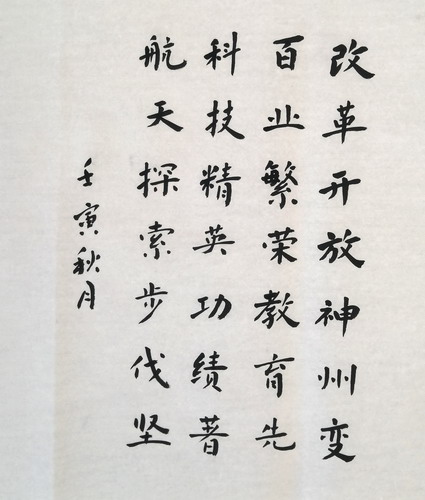 改革开放神州变
百业繁荣教育先
科技精英功绩著
航天探索步伐坚
壬寅秋月